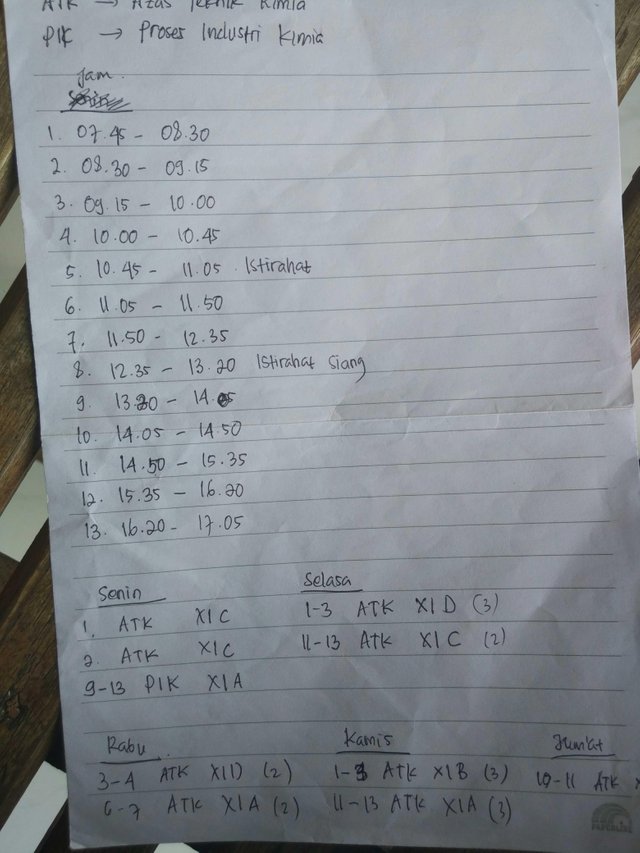 ATK → Azas Teknik Kimia
PIK → Proses Industri Kimia
Jam.
1. 07.45 - 08.30
2. 08.30 - 09.15
3. 09.15 - 10.00
4. 10.00 - 10.45
5. 10.45 - 11.05 Istirahat
6. 11.05 - 11.50
7. 11.50 - 12.35
8. 12.35 - 13.20 Istirahat Siang
9. 13.20 - 14.05
10. 14.05 - 14.50
11. 14.50 - 15.35
12. 15.35 - 16.20
13. 16.20 - 17.05
Senin
1. ATK XI C
2. ATK XI C
9-13 PIK XI A
Selasa
1-3 ATK XI D (3)
11-13 ATK XI C (2)
Rabu
3-4 ATK XI D (2)
6-7 ATK XI A (2)
Kamis
1-3 ATK XI B (3)
11-13 ATK XI A (3)
Jumat
10-11 ATK